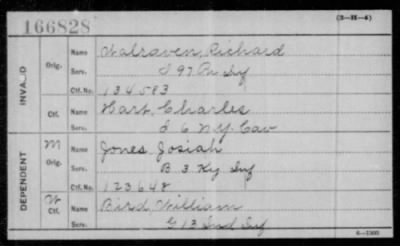 166828
(3-21-4)
INVALID
Orig.
Name Walraven, Richard
Serv. I 97 Pa Inf
Ctf. No. 134583
Ctf.
Name Hart, Charles
Serv. I 6 N.Y. Cav
DEPENDENT
M Orig.
Name Jones Josiah
Serv. B 3 Ky Inf
Ctf. No. 123648
W Ctf.
Name Bird William
Serv. G 13 Ind Inf